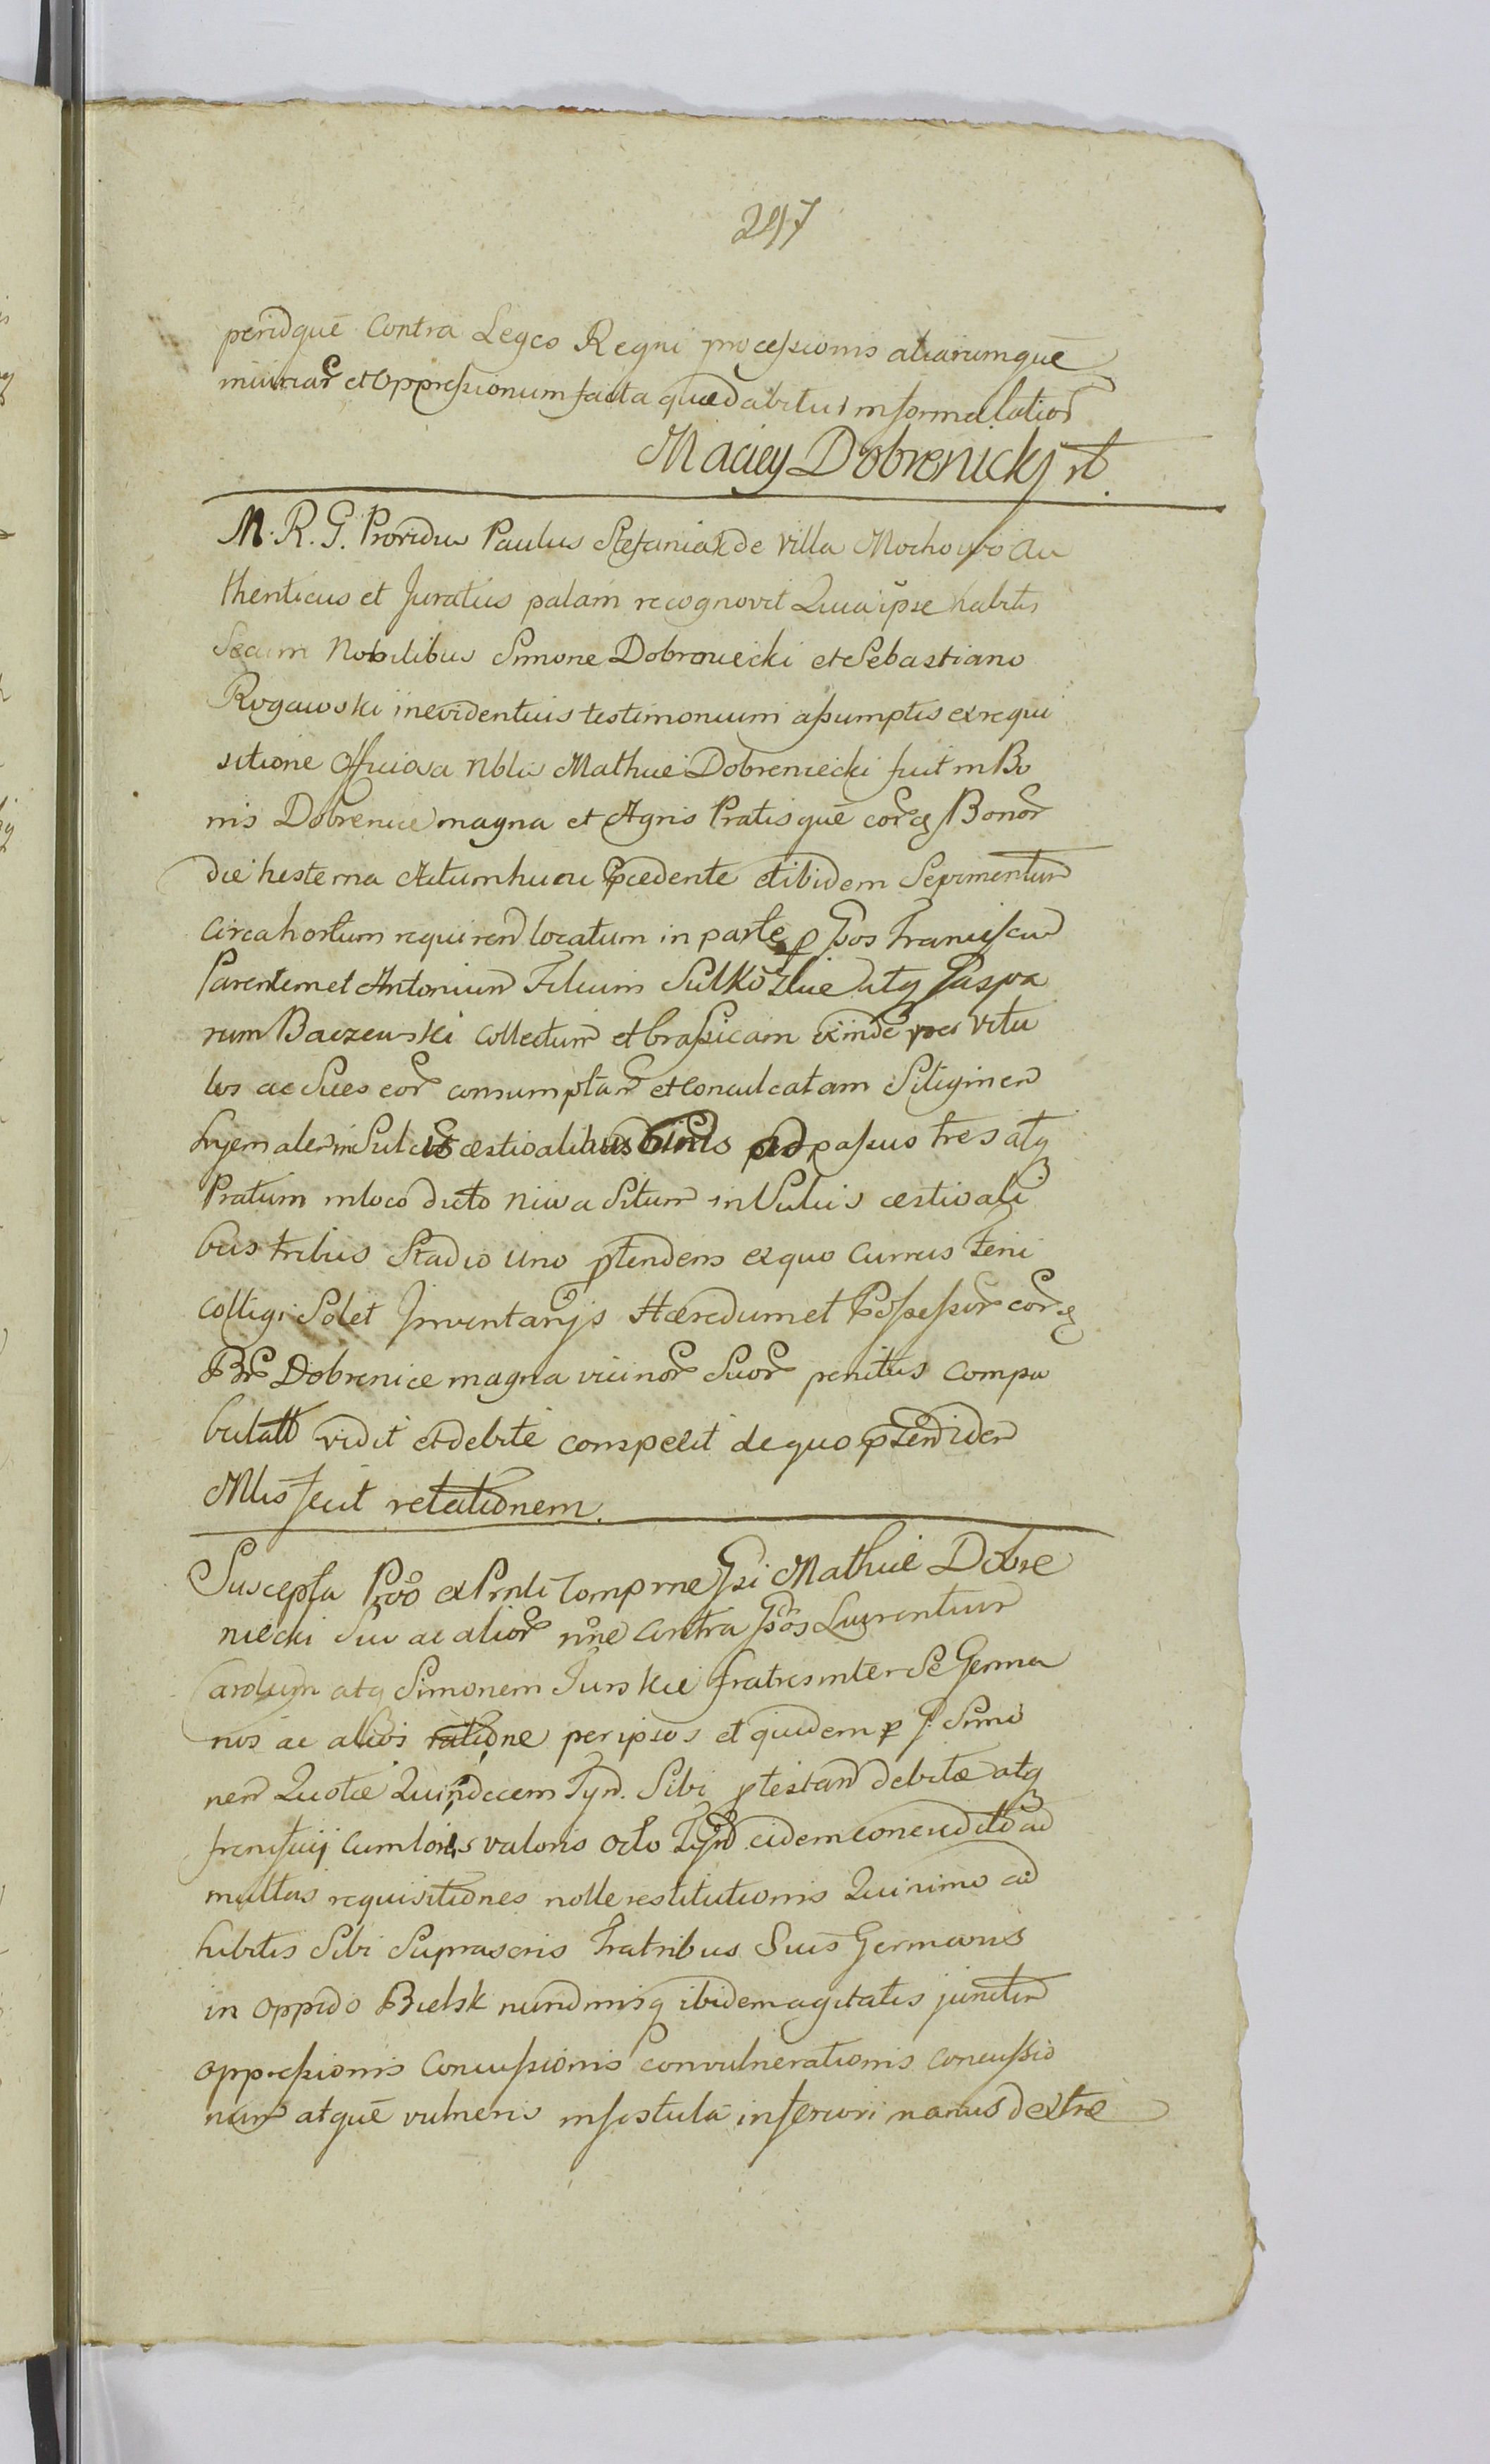 297
peridque Contra Leges Regni processionis aliarumque
iniuriar et Oppressionum facta quae dabitur informalatior
Maciey Dobrenicky
M. R. G. Providus Paulus Stefaniak de Villa Mochowo Au
thenticus et Juratus palam recognovit Quia ipse habitis
Secum Nobilibus Simone Dobreniecki et Sebastiano
Rogawski in evidentius testimonium assumptis ex requi
sitione Officiosa Nblis Mathiae Dobreniecki fuit in Bo
nis Dobrenice magna et Agris Pratisque corg Bonor
die hesterna Actum hunc pcedente et ibidem Sepimentum
Circa hortum requiren locatum in parte p Gsos Franciscum
Parentem et Antonium Filium Sulkoskie atq Gaspa
rum Baczewski collectum et brassicam exinde per vitu
los ac Sues eor consumptam et conculcatam Siliginem
hyemalem in Sulcis aestivalibus binis ad passus tres atq
Pratum in loco dicto Niwa Situm in Sulcis aestivali
bus tribus Stadio uno ptendens ex quo Currus feni
colligi Solet Inventarijs Haeredum et Possessor corg
Br Dobrenice magna vicinor Suor penitus compa
bulatt vidit et debite conspexit de quo ptendiden
Mlis fecit relationem.
Suscepta Proo ex Prnti Compne Gsi Mathiae Dobre
niecki Suo ac alior nne contra Gsos Laurentium
Carolum atq Simonem Turskie fratres inter Se Germa
nos ac alios ratione per ipsos et quidem p G. Simo
nem Quotae Quindecem Tyn. Sibi ptestan debitae atq
frenisuij cum loris valoris octo Tyn eidem concredit ad
multas requisitiones nolle restitutionis Quinimo ad
hibitis Sibi Suprascris Fratribus Suis Germanis
in oppido Bielsk nundinisq ibidem agitatis junctim
oppressionis Concussionis convulnerationis concussio
num atque vulneris in fistula inferiori manus dextrae